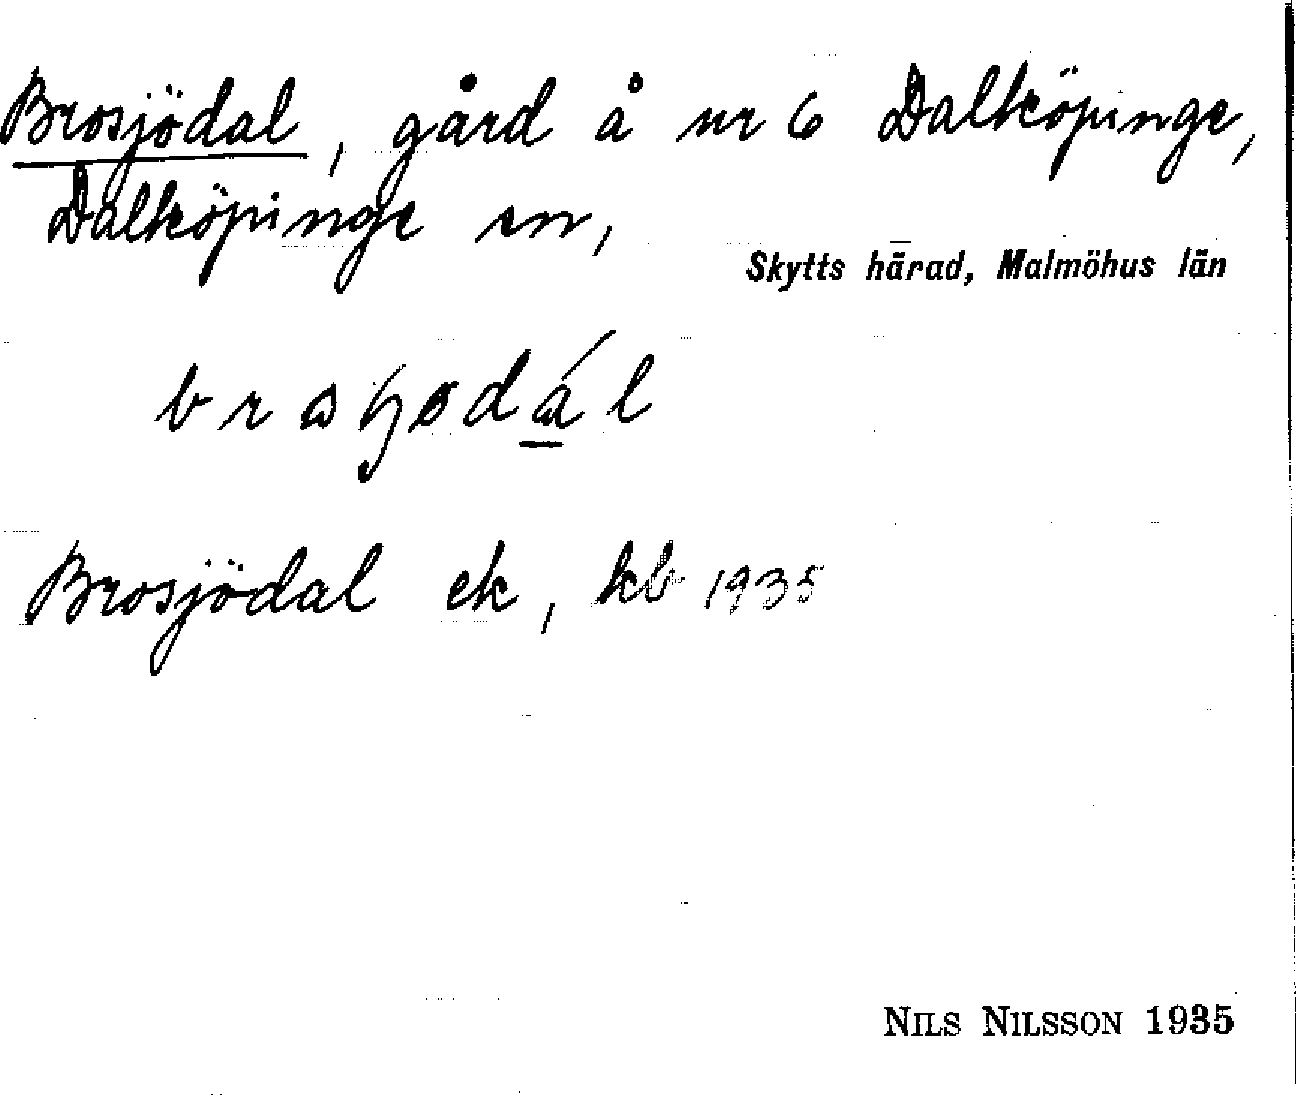 Brosjödal, gård å nr 6 Dalköpinge,
Dalköpinge sn,
Skytts härad, Malmöhus län
Brosjödal ek, kb 1935
NILS NILSSON 1935